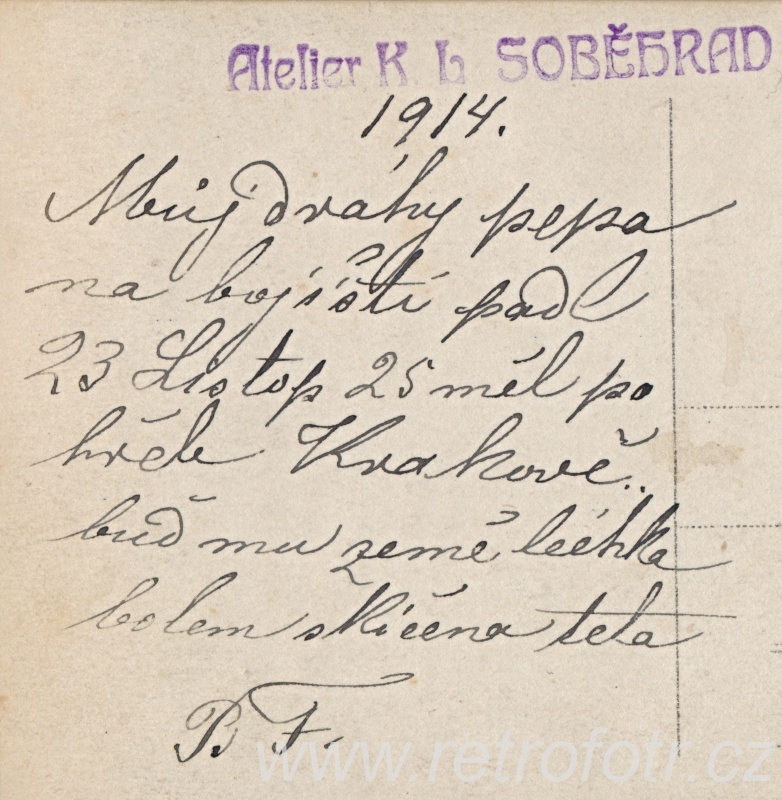 Atelier K L SOBĚHRAD
1914.
Můj dráhy pepa
na bojíští padl
23 Listop 25 měl po
hřeb Krakově..
buď mu země léhka
bolem sklíčena teta
B F.
www.retrofotr.cz